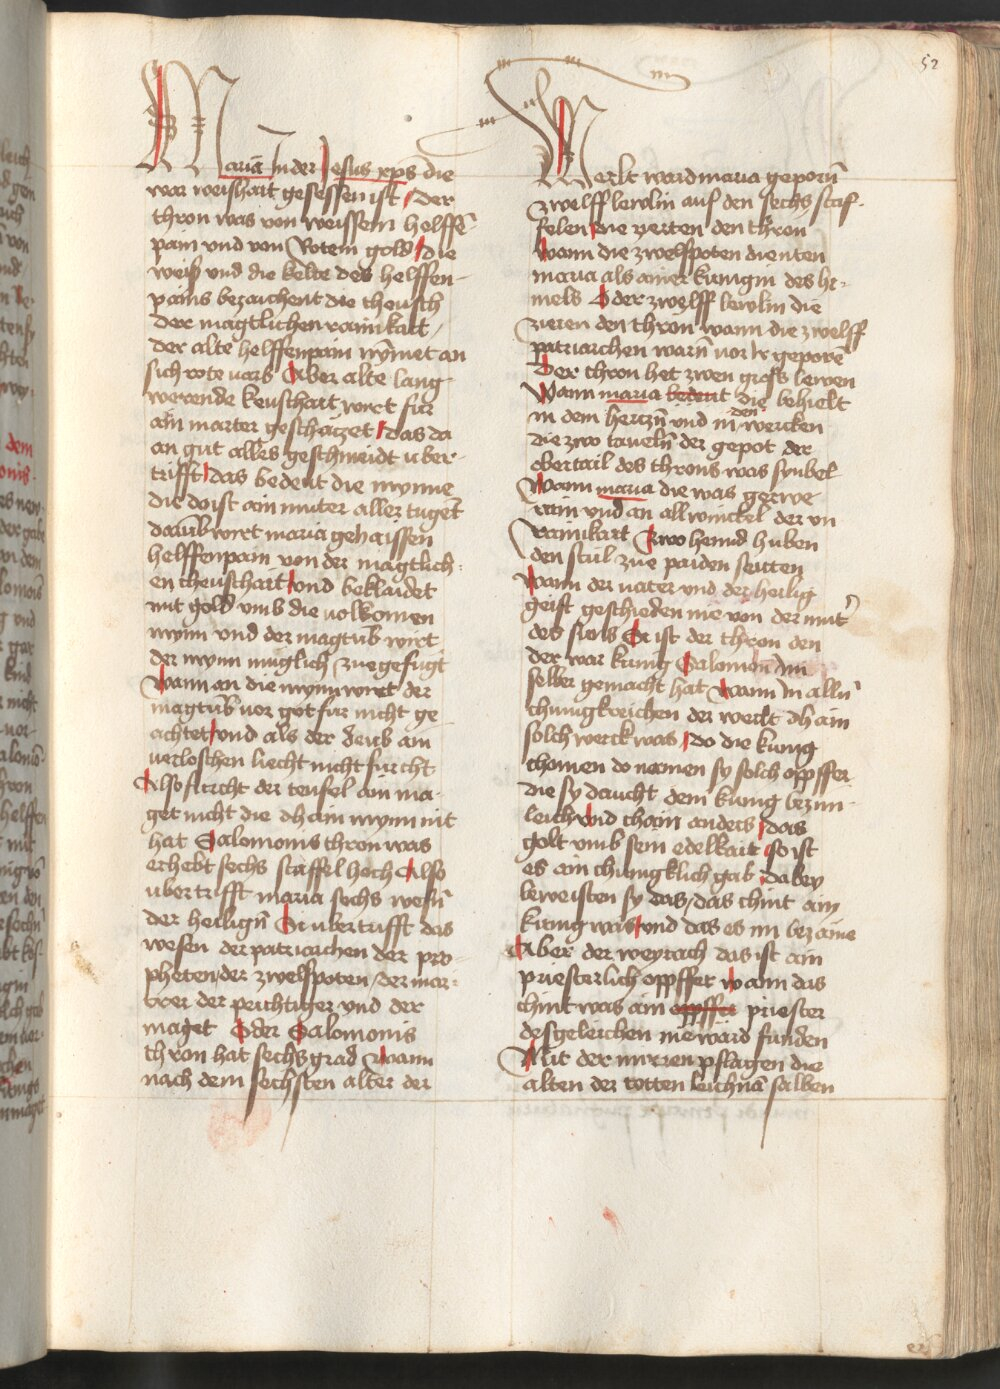 52
Mariā In der Jesus xp̄s die
war weishait gesessen ist Der
thron was von weissem helffē
pain vnd von Rotem gold die
weiß vnd die kelte des helffen
pains bezaichent die cheüsch
der magtlichen rainikait
der alte helffenpain nymet an
sich rote uarb Aber alte lang
werende keuschait wirt für
ain marter geschäczet das da
an gut alles geschmeidt uber
trifft das bedeut die mynne
die do ist ain muter aller tugēt
darūb wirt maria gehaissen
helffenpain von der mägtlich
en cheuschait vnd beklaidet
mit gold vmb die uolkomen
mynn vnd der magtūb wirt
der mynn muglich zuegefügt
Wann an die mynn wirt der
magtūb vor got für nicht ge
achtet vnd als der deub ain
verloschen liecht nicht fürcht
Also fürcht der teufel ain ma
get nicht die dhain mynn nit
hat Salomonis thron was
erhebt sechs staffel hoch Also
ubertrifft maria sechs wesn̄
der heilign̄ Si ubertrifft das
wesen der patriarchen der pro
pheten der zwelfpoten der mar
trer der peichtiger vnd der
maget Oder Salomonis
thron hat sechs grad Wann
nach dem sechsten alter der
Werlt ward maria geporn̄
zwelff lewlin auf den sechs staf
felen die zierten den thron
Wann die zwelfpoten dienten
maria als ainer kunigin des hi
mels Oder zwelff lewlin die
zieren den thron wann die zwelff
patriarchen warn̄ vor Ir geporē
Der thron het zwen gross lewen
Wann maria bedeut die behielt
in dem herczn̄ vnd in den wercken
die zwo taueln̄ der gepot der
obertail des throns was synbel
Wann maria die was gar
rain vnd an all winckel der vn
rainikait Zwo hennd huben
den stůl zue paiden seitten
Wann der uater vnd der heilig
geist geschieden nie von der mut̄
des suns Er ist der thron den
der war kunig Salomon Im
selber gemacht hat Wann In alln̄
chunigkreichen der werlt dhain
solch werck was do die kunig
chomen do nomen sy solch opffer
die sy daucht dem kunig bezim
leich vnd chain anders das
golt vmb sein edelkait so ist
es ain chunigklich gab Dabey
beweisten sy das das chint ain
kunig was vnd das es im bezäme
Aber der weyrach das ist ain
priesterlich opffer Wann das
chint was ain opffer priester
desgeleichen nie ward funden
Mit der mirren pflagen die
alten der totten leichnā salben